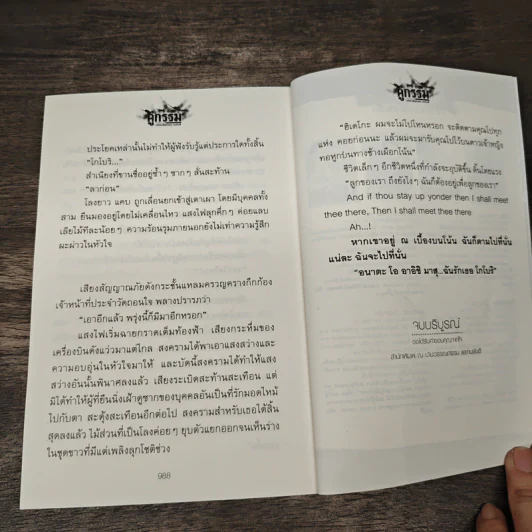 คู่กรรม
ประโยคเหล่านั้นไม่ทำให้ผู้ฟังรับรู้แต่ประการใดทั้งสิ้น
"โกโบริ..."
สำเนียงที่ขานชื่ออยู่ซ้ำๆ ซากๆ สั่นสะท้าน
"ลาก่อน"
โลงยาว แคบ ถูกเลื่อนยกเข้าสู่เตาเผา โดยมีบุคคลทั้ง
สาม ยืนมองอยู่โดยไม่เคลื่อนไหว แสงไฟลุกคึกๆ ค่อยแลบ
เลียไม้ทีละน้อยๆ ความร้อนรุมภายนอกยังไม่เท่าความรู้สึก
ผะผ่าวในหัวใจ
เสียงสัญญาณภัยดังกระชั้นแหลมครวญครางกึกก้อง
เจ้าหน้าที่ประจำวัดถอนใจ พลางปรารภว่า
"เอาอีกแล้ว พรุ่งนี้ก็มีมาอีกหรอก"
แสงไฟเริ่มฉายกราดเต็มท้องฟ้า เสียงกระหึ่มของ
เครื่องบินดังแว่วมาแต่ไกล สงครามได้พาเอาแสงสว่างและ
ความอบอุ่นในหัวใจมาให้ และบัดนี้สงครามได้ทำให้แสง
สว่างอันนั้นพินาศลงแล้ว เสียงระเบิดสะท้านสะเทือน แต่
มิได้ทำให้ผู้ที่ยืนนิ่งเฝ้าดูซากของบุคคลอันเป็นที่รักมอดไหม้
ไปกับตา สะดุ้งสะเทือนอีกต่อไป สงครามสำหรับเธอได้สิ้น
สุดลงแล้ว ไม้ส่วนที่เป็นโลงค่อยๆ ยุบตัวแยกออกจนเห็นร่าง
ในชุดขาวที่มีแต่เพลิงลุกโชติช่วง
988
คู่กรรม
"ฮิเดโกะ ผมจะไม่ไปไหนหรอก จะติดตามคุณไปทุก
แห่ง คอยก่อนนะ แล้วผมจะมารับคุณไปไว้บนดาวเจ้าหญิง
ทอหูกบนทางช้างเผือกโน้น"
ชีวิตเล็กๆ อีกชีวิตหนึ่งที่กำลังจะอุบัติขึ้น ดิ้นโดยแรง
"ลูกของเรา ถึงยังไงๆ ฉันก็ต้องอยู่เพื่อลูกของเรา"
And if thou stay up yonder then I shall meet
thee there, Then I shall meet thee there
Ah...!
หากเขาอยู่ ณ เบื้องบนโน้น ฉันก็ตามไปที่นั่น
แน่ละ ฉันจะไปที่นั่น
"อนาตะ โอ อาอิชิ มาสุ..ฉันรักเธอ โกโบริ"
จบบริบูรณ์